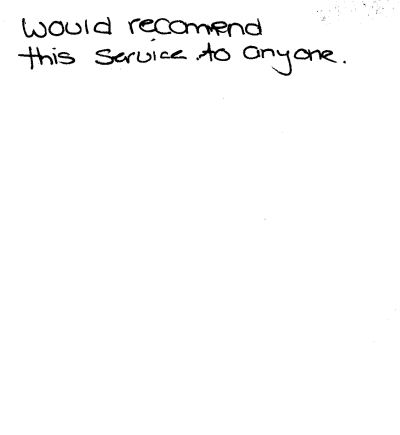 would recomend
this service to anyone.